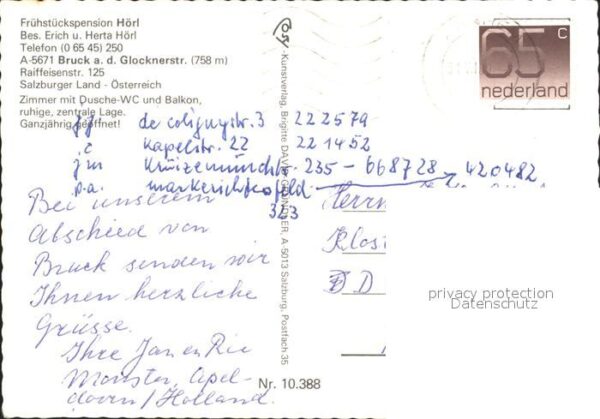 Frühstückspension Hörl
Bes. Erich u. Herta Hörl
Telefon (0 65 45) 250
A-5671 Bruck a. d. Glocknerstr. (758 m)
Raiffeisenstr. 125
Salzburger Land - Österreich
Zimmer mit Dusche-WC und Balkon,
ruhige, zentrale Lage.
Ganzjährig geöffnet!
de colignystr. 3 222579
kapelstr. 22 221452
235 - 668728 420482
323
Bei unserem
Abschied von
Bruck senden wir
Ihnen herzliche
Grüsse.
Ihre Jan en Rie
Monster, Apel-
doorn/Holland.
Kunstverlag, Brigitte A-5013 Salzburg, Postfach 35
Nr. 10.388
65 c
nederland
Herrn
Klos
DD
privacy protection
Datenschutz